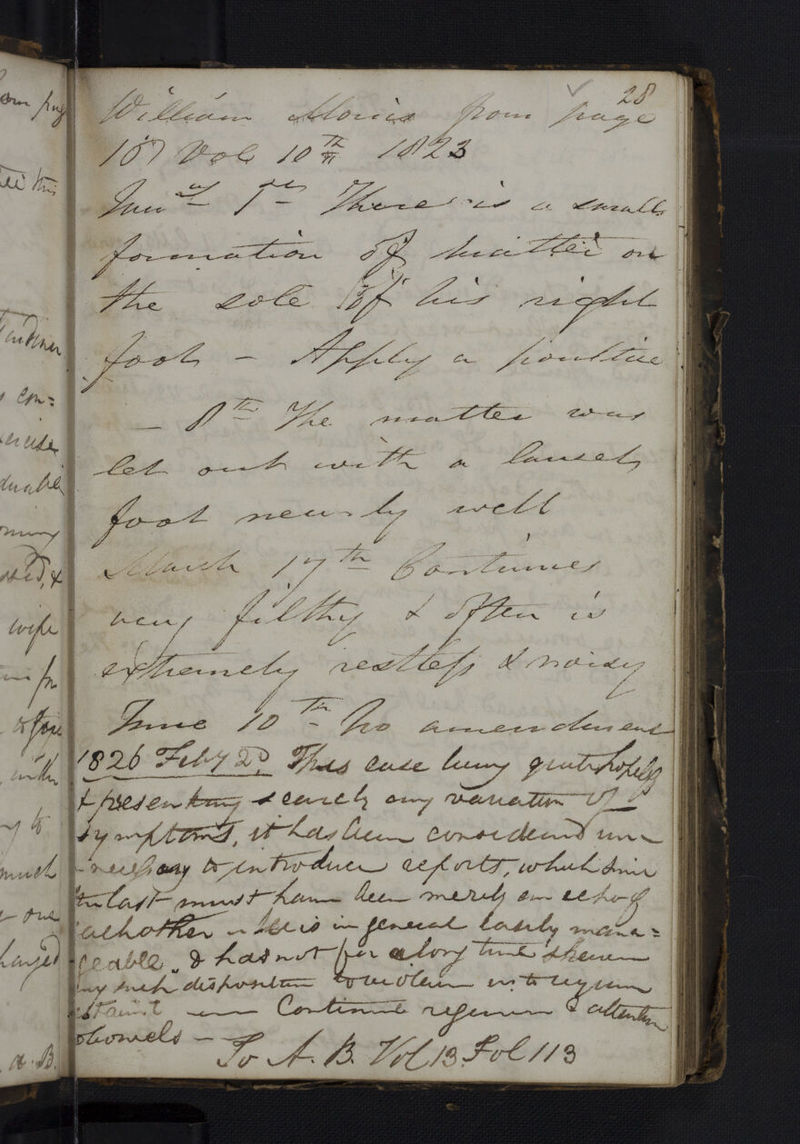 28
William Moriss from page
107 Vol 10th 1823
There is a small
formation of matter on
the sole of his right
foot - Apply a poultice
- 8th The matter was
let out with a lancet
foot nearly well
March 17th Continues
very filthy & often is
extremely restless & noisy
June 10th No amendment
1826 Feby 2d. This case being quite hopeless
& presenting scarcely any variation of
symptoms, it has been considered un-
-necessary to introduce reports, which since
the last must have been merely an echo of
each other He is in general easily mana=
geable, & has not for a long time shewn
any such disposition to violence as to require
restraint Continue regimen & attention
to bowels -
To A. B. Vol 13. Fol 113
from pag
Gardener
con=
exercise
wife
with
much
one
A. B.